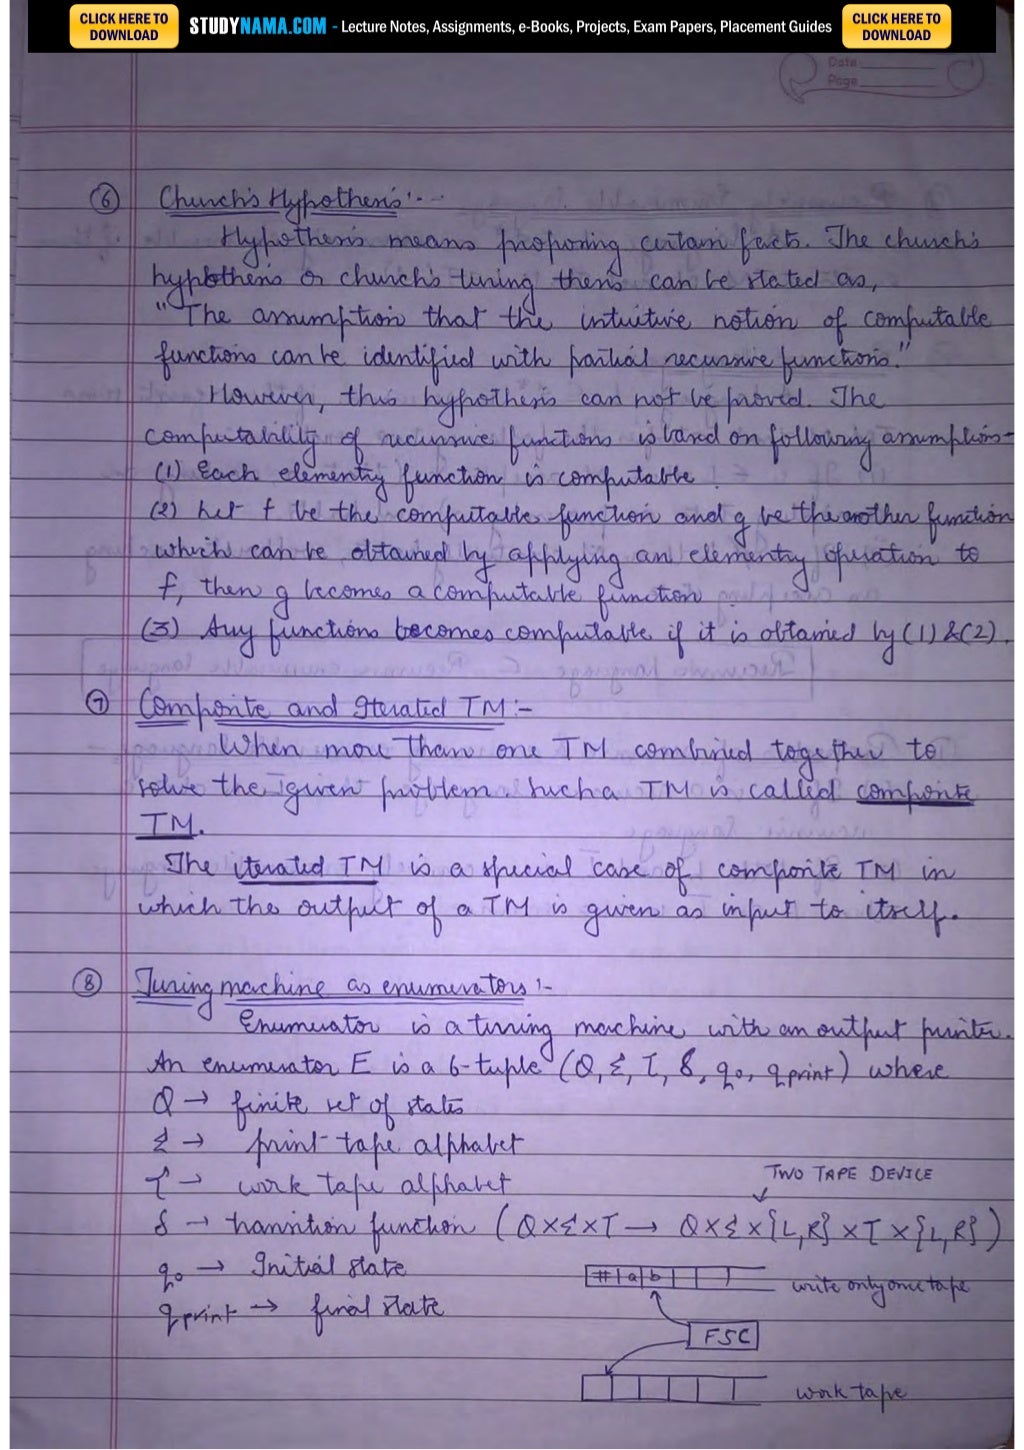 CLICK HERE TO DOWNLOAD STUDYNAMA.COM - Lecture Notes, Assignments, e-Books, Projects, Exam Papers, Placement Guides CLICK HERE TO DOWNLOAD
Date
Page
⑥ Church's Hypothesis :-
Hypothesis means proposing certain facts. The church's
hypothesis or church's turing thesis can be stated as,
"The assumption that the intuitive notion of computable
functions can be identified with partial recursive functions."
However, this hypothesis can not be proved. The
computability of recursive functions is based on following assumptions-
(1) Each elementry function is computable.
(2) Let f be the computable function and g be the another function
which can be obtained by applying an elementry operation to
f, then g becomes a computable function.
(3) Any functions becomes computable if it is obtained by (1) & (2).
⑦ Composite and Iterated TM :-
When more than one TM combined together to
solve the given problem. Such a TM is called composite
TM.
The iterated TM is a special case of composite TM in
which the output of a TM is given as input to itself.
⑧ Turing machine as enumerators :-
Enumerator is a turing machine with an output printer.
An enumerator E is a 6-tuple (Q, Σ, Γ, δ, q0, qprint) where
Q → finite set of states
Σ → print tape alphabet
Γ → work tape alphabet
TWO TAPE DEVICE
δ → transition function (Q×Σ×Γ → Q×Σ×{L,R}×Γ×{L,R})
q0 → Initial state
# a b write only one tape
qprint → final state
FSC
work tape